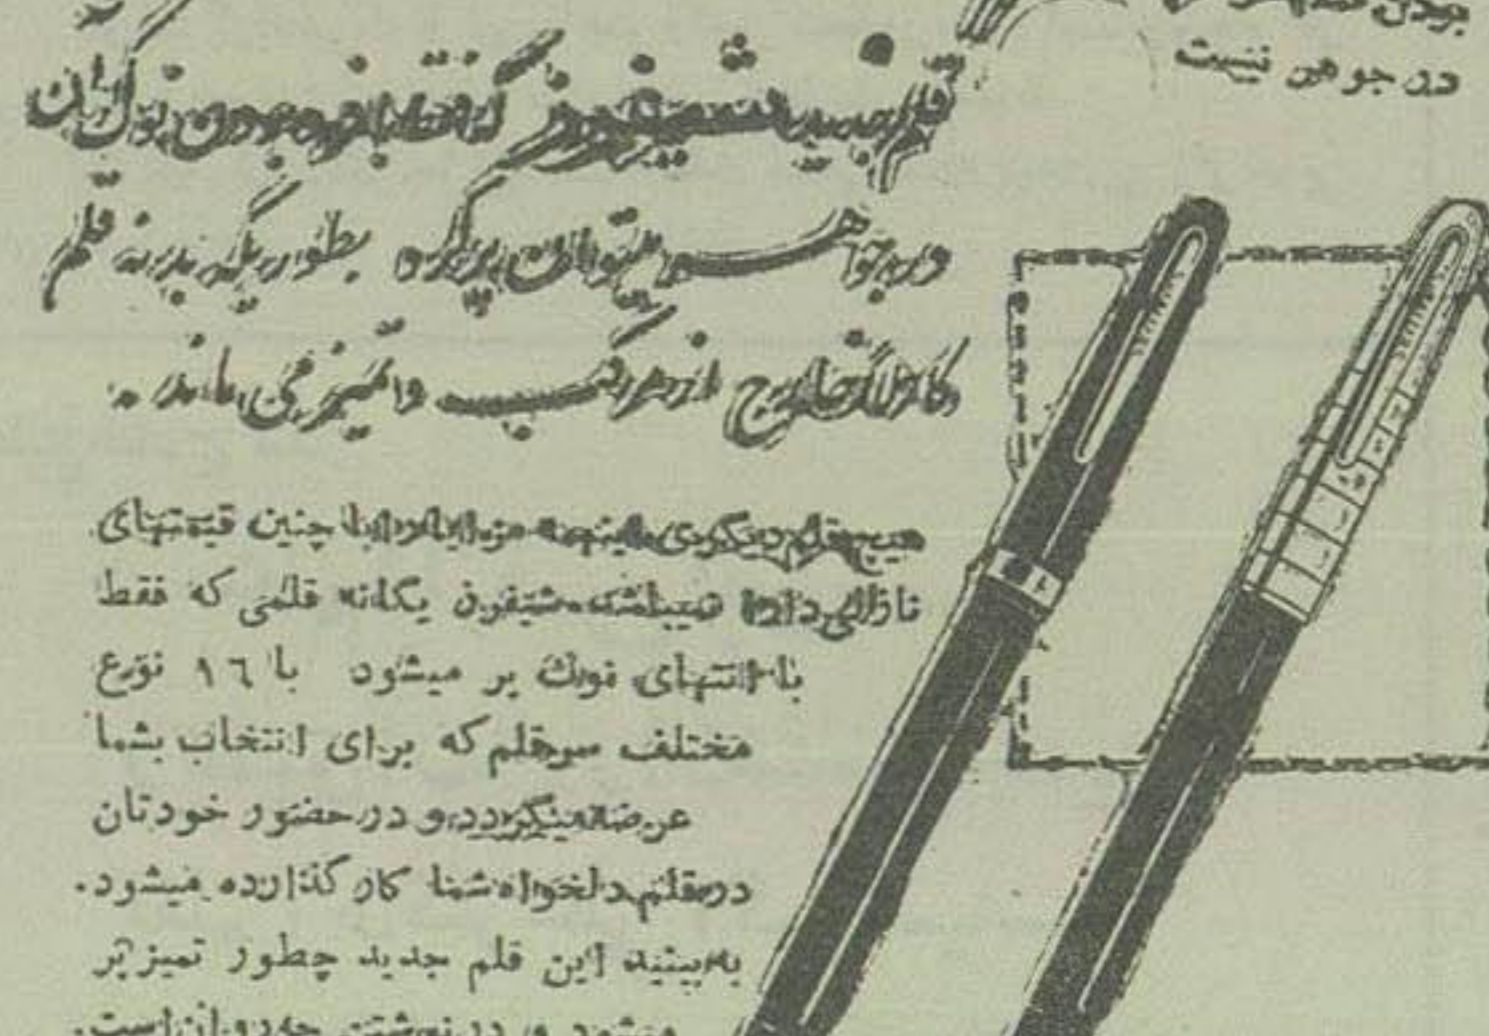 در جوهر نیست
قلم جدید شیفرز که فقط با فرو بردن نوک آن
در جوهر میتوان پر کرد بطوریکه بدنه قلم
کاملا خارج از مرکب و تمیز می ماند.
هیچ قلم دیگری اینهمه مزایا را با چنین قیمتهای
نازلی دارا نمیباشد. شیفرز یگانه قلمی که فقط
با انتهای نوک پر میشود با ١٦ نوع
مختلف سرقلم که برای انتخاب بشما
عرضه میگردد و در حضور خودتان
در قلم دلخواه شما کار گذارده میشود.
به بینید این قلم جدید چطور تمیز پر
میشود و در نوشتن چه روان است.